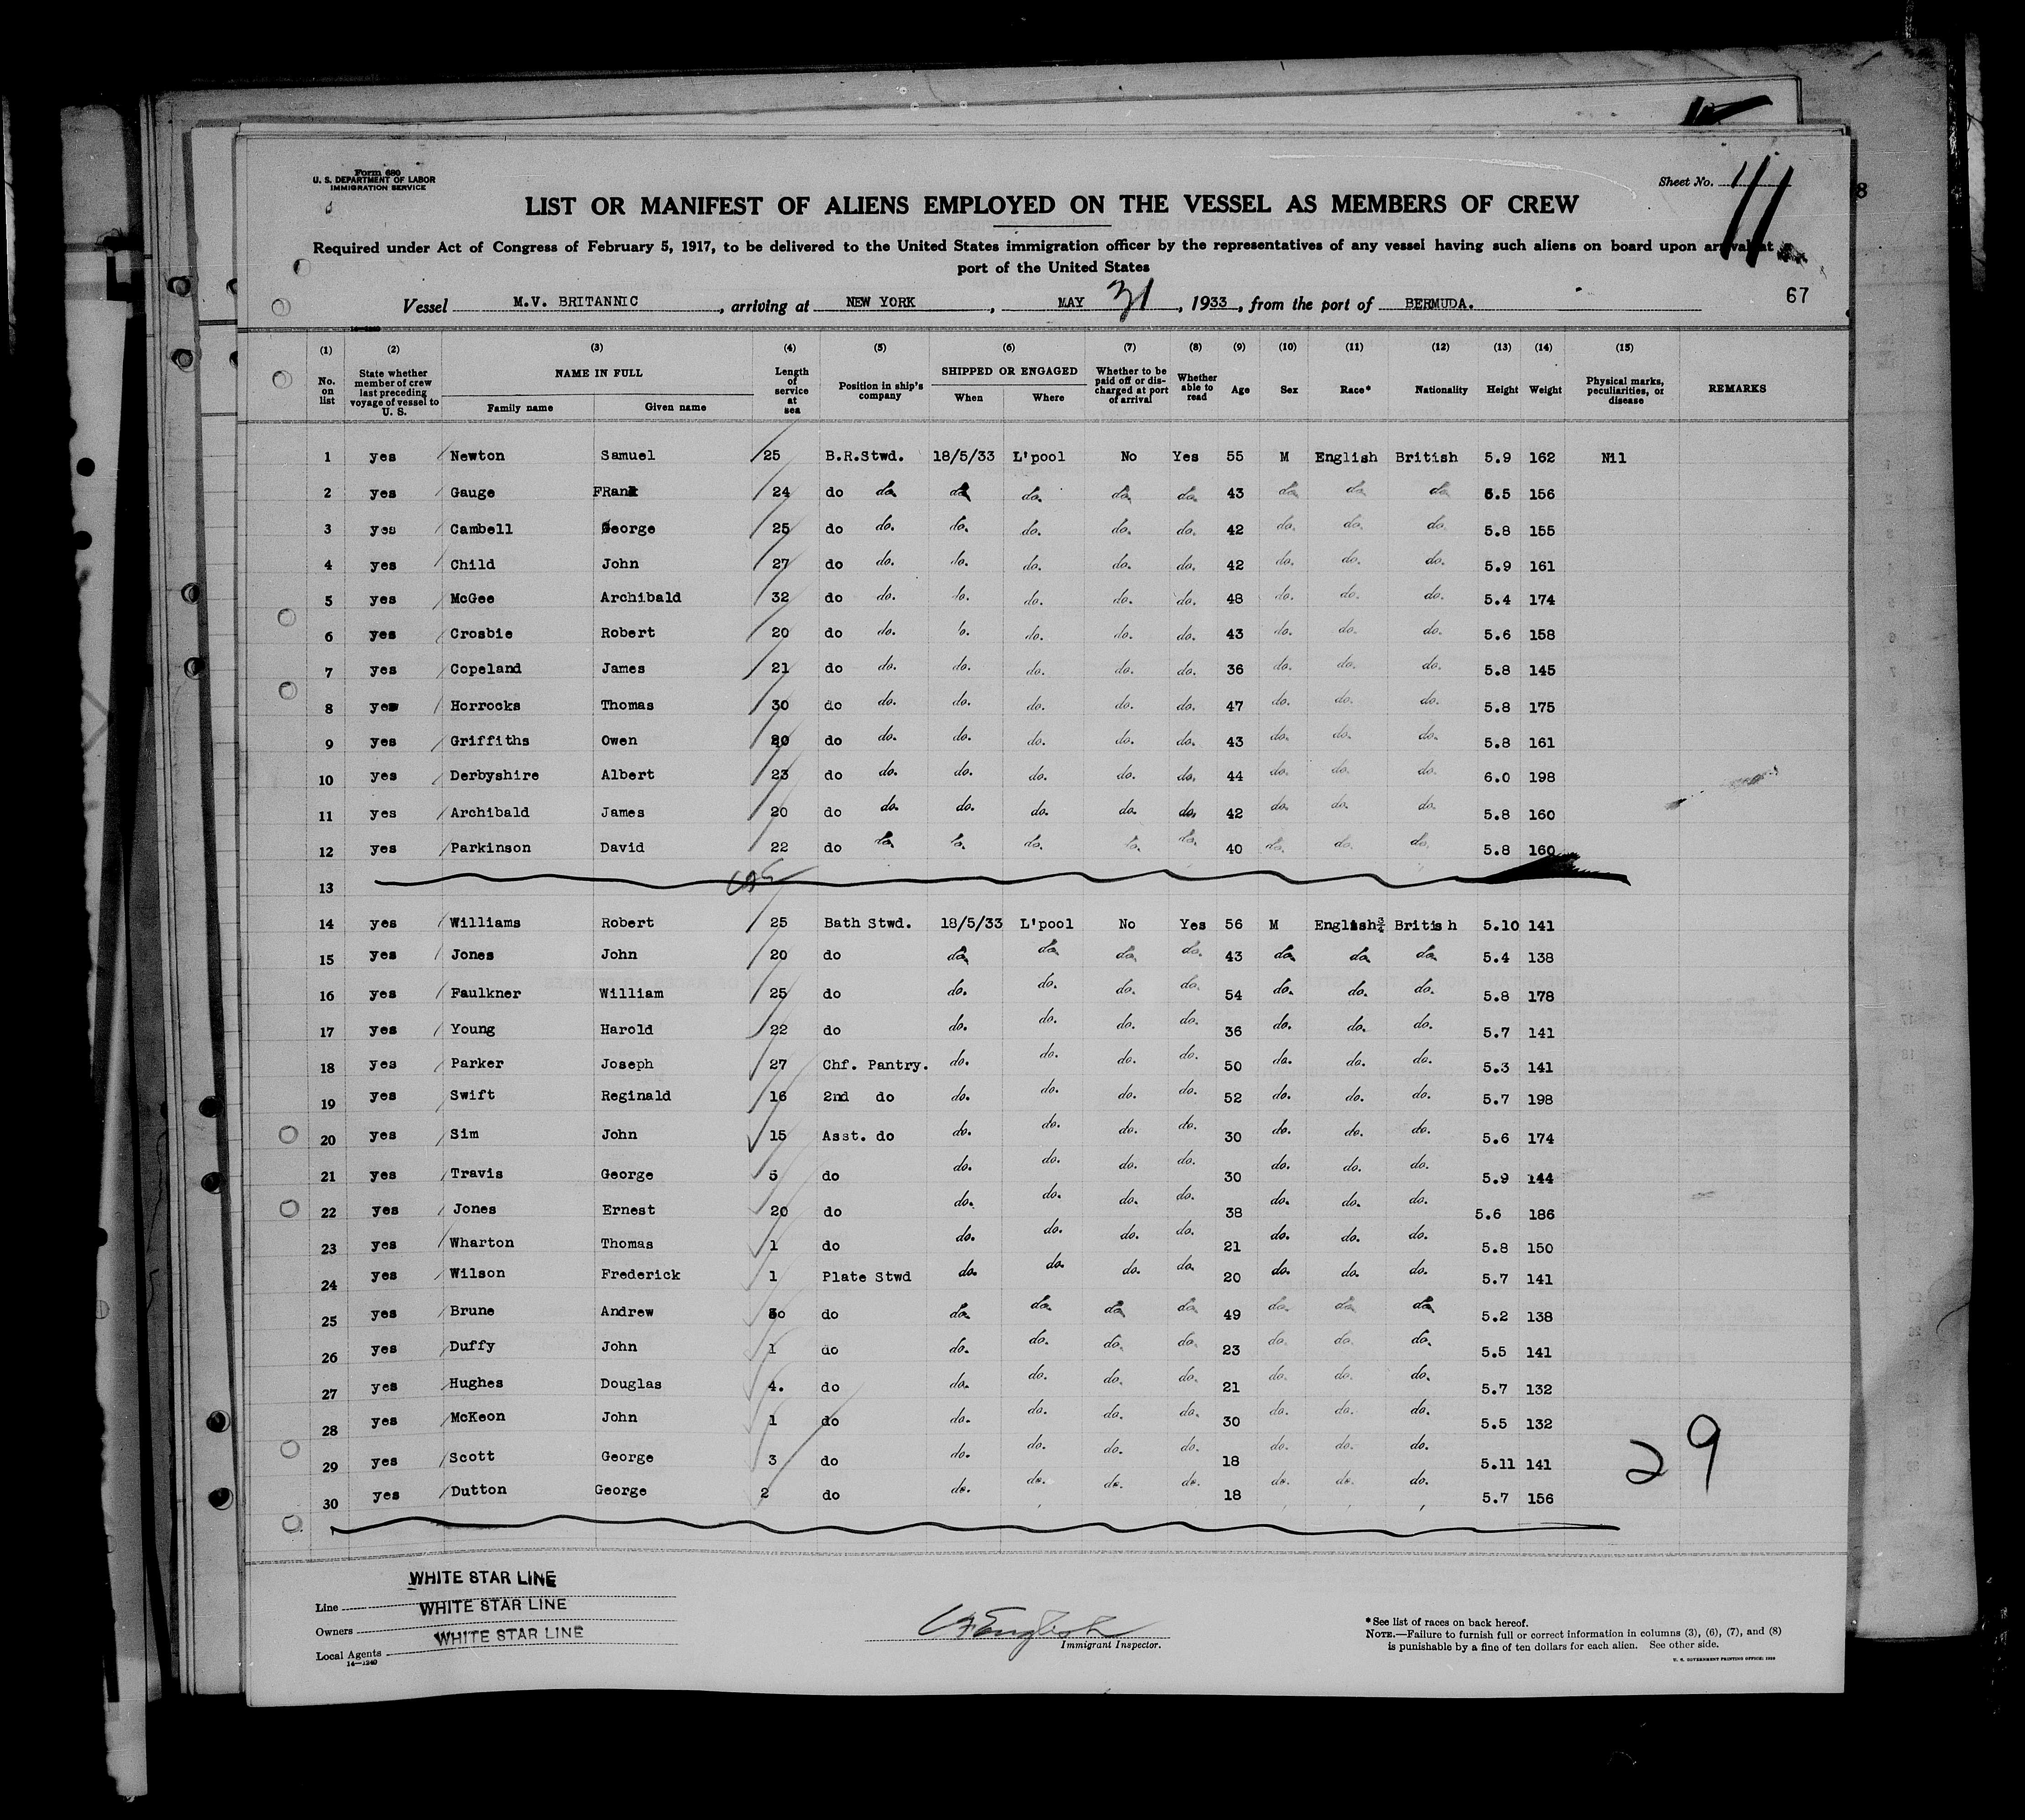 Form 680
U. S. DEPARTMENT OF LABOR
IMMIGRATION SERVICE
Sheet No. 11
LIST OR MANIFEST OF ALIENS EMPLOYED ON THE VESSEL AS MEMBERS OF CREW
Required under Act of Congress of February 5, 1917, to be delivered to the United States immigration officer by the representatives of any vessel having such aliens on board upon arrival at a
port of the United States
67
Vessel M.V. BRITANNIC, arriving at NEW YORK, MAY 31, 1933, from the port of BERMUDA.
(1) (2) (3) (4) (5) (6) (7) (8) (9) (10) (11) (12) (13) (14) (15)
No. on list State whether member of crew last preceding voyage of vessel to U. S. NAME IN FULL Family name Given name Length of service at sea Position in ship's company SHIPPED OR ENGAGED When Where Whether to be paid off or discharged at port of arrival Whether able to read Age Sex Race* Nationality Height Weight Physical marks, peculiarities, or disease REMARKS
1 yes Newton Samuel 25 B.R.Stwd. 18/5/33 L'pool No Yes 55 M English British 5.9 162 Nil
2 yes Gauge FRank 24 do do. do. do. do. do. 43 do. do. do. 5.5 156
3 yes Cambell George 25 do do. do. do. do. do. 42 do. do. do. 5.8 155
4 yes Child John 27 do do. do. do. do. do. 42 do. do. do. 5.9 161
5 yes McGee Archibald 32 do do. do. do. do. do. 48 do. do. do. 5.4 174
6 yes Crosbie Robert 20 do do. do. do. do. do. 43 do. do. do. 5.6 158
7 yes Copeland James 21 do do. do. do. do. do. 36 do. do. do. 5.8 145
8 yes Horrocks Thomas 30 do do. do. do. do. do. 47 do. do. do. 5.8 175
9 yes Griffiths Owen do do. do. do. do. do. 43 do. do. do. 5.8 161
10 yes Derbyshire Albert 23 do do. do. do. do. do. 44 do. do. do. 6.0 198
11 yes Archibald James 20 do do. do. do. do. do. 42 do. do. do. 5.8 160
12 yes Parkinson David 22 do do. do. do. do. do. 40 do. do. do. 5.8 160
13
14 yes Williams Robert 25 Bath Stwd. 18/5/33 L'pool No Yes 56 M English British 5.10¾ 141
15 yes Jones John 20 do do. do. do. do. 43 do. do. do. 5.4 138
16 yes Faulkner William 25 do do. do. do. do. 54 do. do. do. 5.8 178
17 yes Young Harold 22 do do. do. do. do. 36 do. do. do. 5.7 141
18 yes Parker Joseph 27 Chf. Pantry. do. do. do. do. 50 do. do. do. 5.3 141
19 yes Swift Reginald 16 2nd do do. do. do. do. 52 do. do. do. 5.7 198
20 yes Sim John 15 Asst. do do. do. do. do. 30 do. do. do. 5.6 174
21 yes Travis George 5 do do. do. do. do. 30 do. do. do. 5.9 144
22 yes Jones Ernest 20 do do. do. do. do. 38 do. do. do. 5.6 186
23 yes Wharton Thomas 1 do do. do. do. do. 21 do. do. do. 5.8 150
24 yes Wilson Frederick 1 Plate Stwd do. do. do. do. 20 do. do. do. 5.7 141
25 yes Brune Andrew 30 do do. do. do. do. 49 do. do. do. 5.2 138
26 yes Duffy John 1 do do. do. do. do. 23 do. do. do. 5.5 141
27 yes Hughes Douglas 4. do do. do. do. do. 21 do. do. do. 5.7 132
28 yes McKeon John 1 do do. do. do. do. 30 do. do. do. 5.5 132
29 yes Scott George 3 do do. do. do. do. 18 do. do. do. 5.11 141
30 yes Dutton George 2 do do. do. do. do. 18 do. do. do. 5.7 156
29
Line WHITE STAR LINE
Owners WHITE STAR LINE
Local Agents WHITE STAR LINE
14—1240
English
Immigrant Inspector.
*See list of races on back hereof.
NOTE.—Failure to furnish full or correct information in columns (3), (6), (7), and (8)
is punishable by a fine of ten dollars for each alien. See other side.
U. S. GOVERNMENT PRINTING OFFICE: 1929